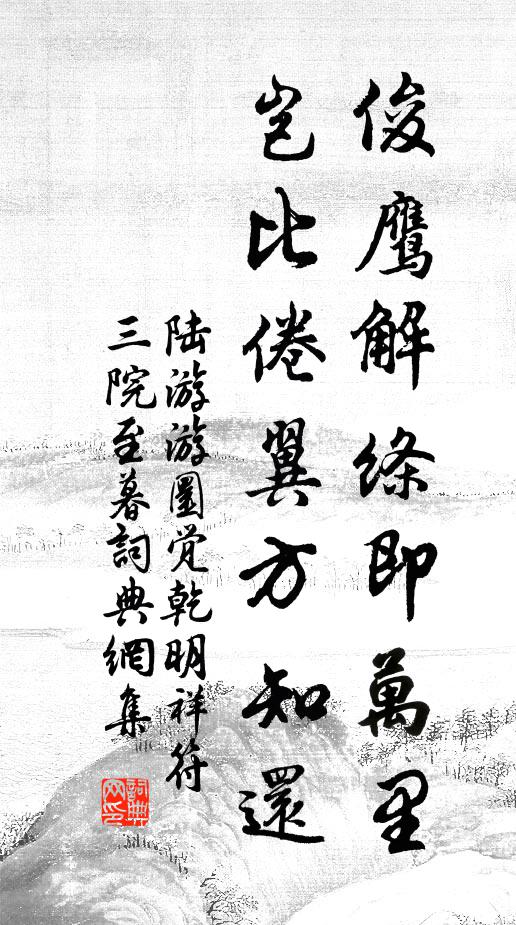 俊鹰解絛即萬里
豈比倦翼方知還
陆游游圆觉乾明祥符
三院至暮詞典網集
詞典网印